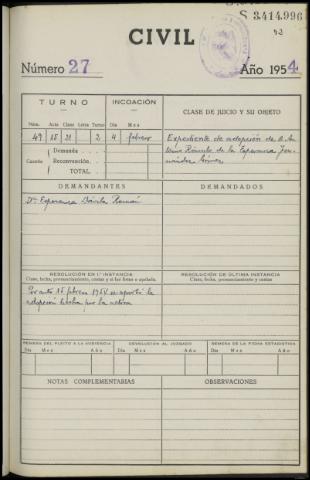 S 3.414.996
CIVIL
Número 27
Año 1954
TURNO
INCOACIÓN
CLASE DE JUICIO Y SU OBJETO
Núm. Acta Clase Letra Turno Día Mes
49 15 21 2 4 febrero
Expediente de adopción de
Rómulo de la Esperanza
Cuantía
Demanda
Reconvención
TOTAL
DEMANDANTES
DEMANDADOS
Dª Esperanza Dávila Román
RESOLUCIÓN EN 1ª INSTANCIA
Clase, fecha, pronunciamiento, costas y si fué firme o apelada.
RESOLUCIÓN DE ÚLTIMA INSTANCIA
Clase, fecha, pronunciamiento, costas
Por auto 15 febrero 1954 se aprobó la
adopción hecha por la actora
REMESA DEL PLEITO A LA AUDIENCIA
DEVOLUCIÓN AL JUZGADO
REMESA DE LA FICHA ESTADÍSTICA
Día Mes Año
Día Mes Año
Día Mes Año
NOTAS COMPLEMENTARIAS
OBSERVACIONES